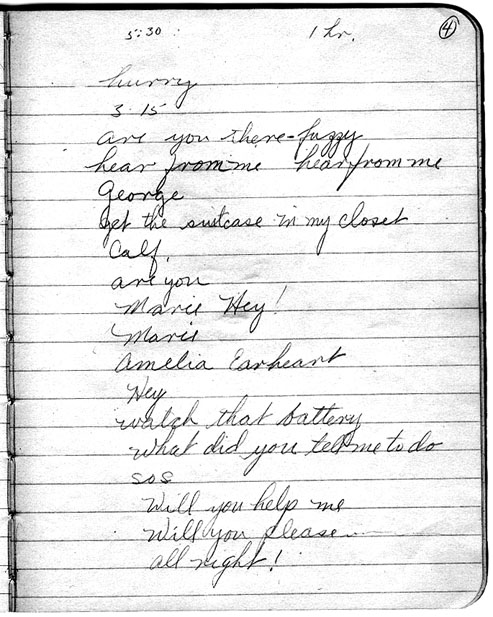 5:30 1 hr. 4
hurry
3.15
are you there - fuzzy
hear from me hear from me
George
get the suitcase in my closet
Calif.
are you
Marie Hey!
Marie
Amelia Earheart
Hey
watch that battery
what did you tell me to do
SOS
Will you help me
Will you please
all right!